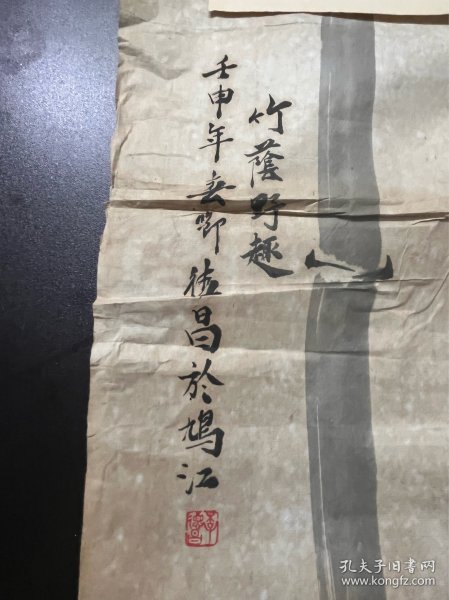 竹蔭野趣
壬申年春節德昌於鳩江
孔夫子旧书网
www.kongfz.com